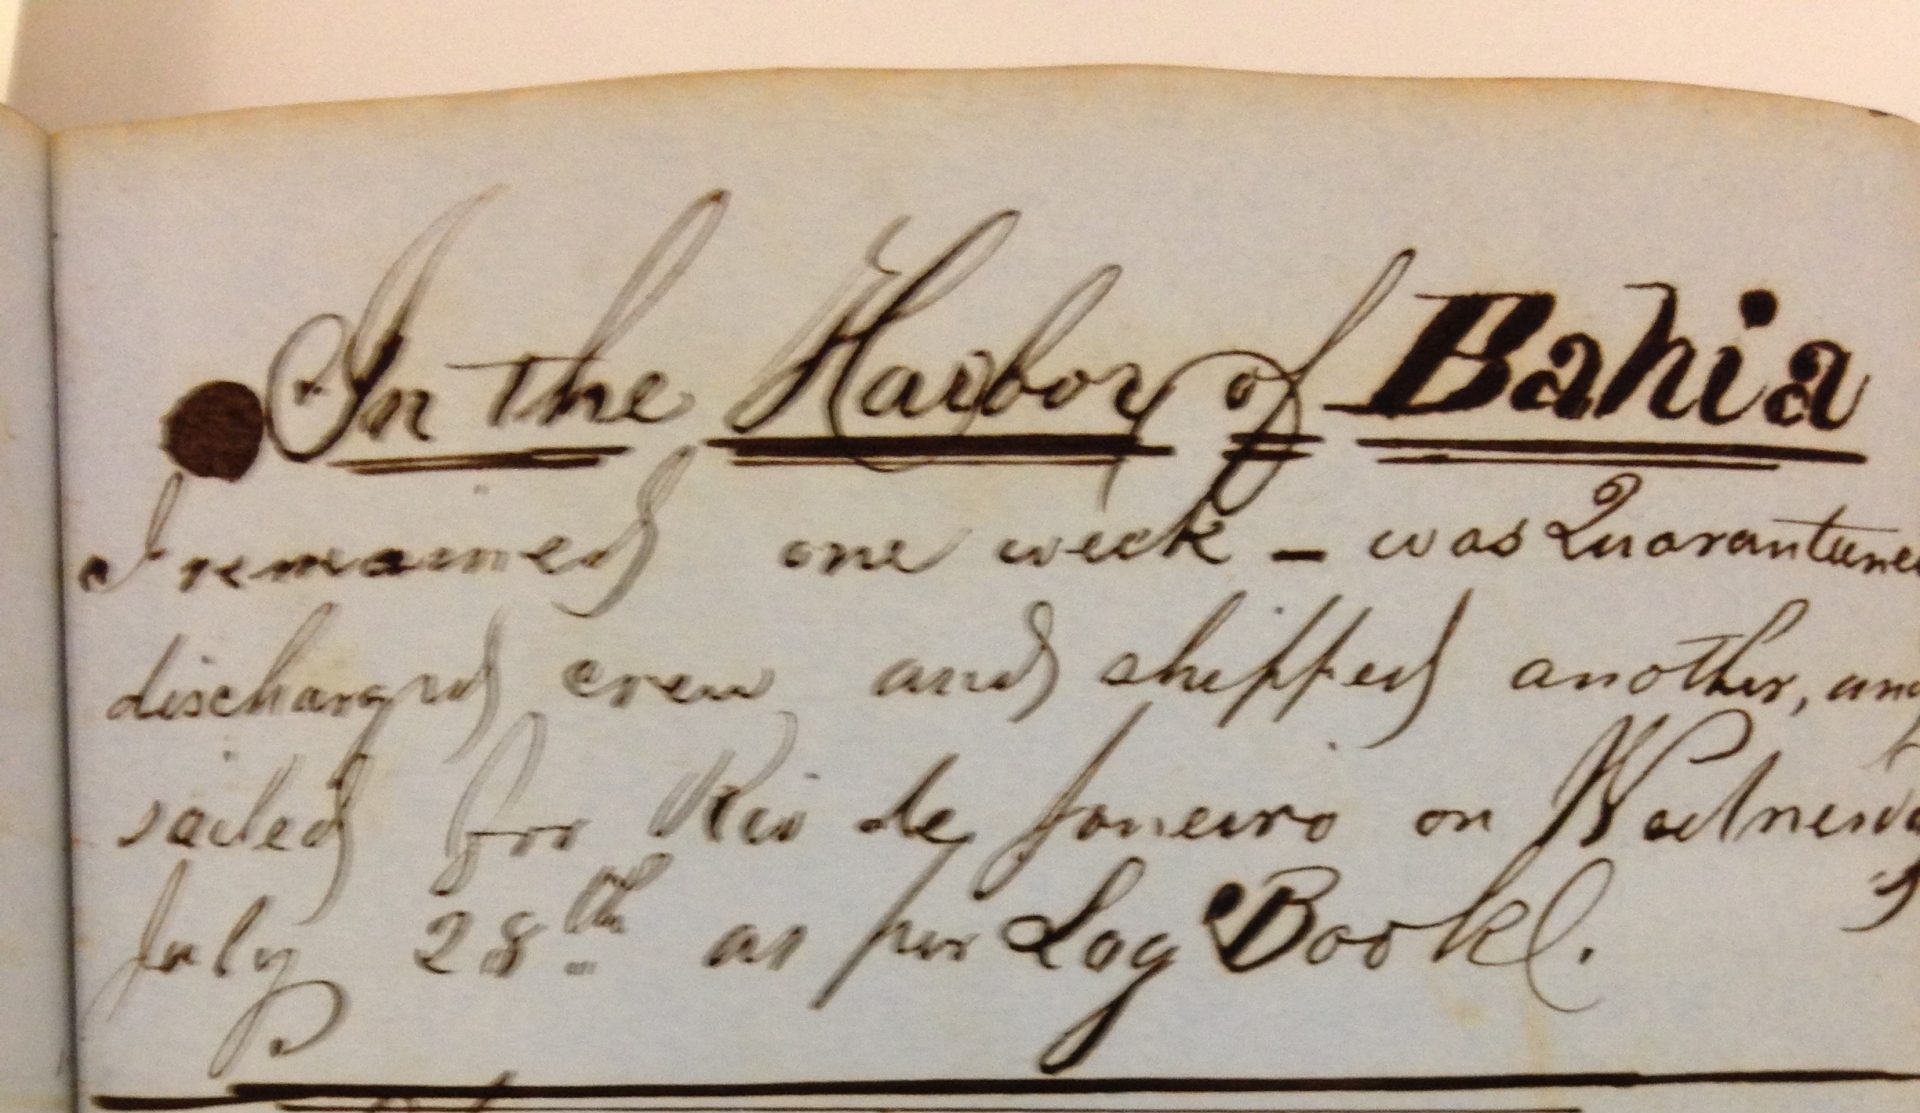 In the Harbor of Bahia
I remained one week – was Quarantined
discharged crew and shipped another, and
sailed for Rio de Janeiro on Wednesday
July 28th as per Log Book.